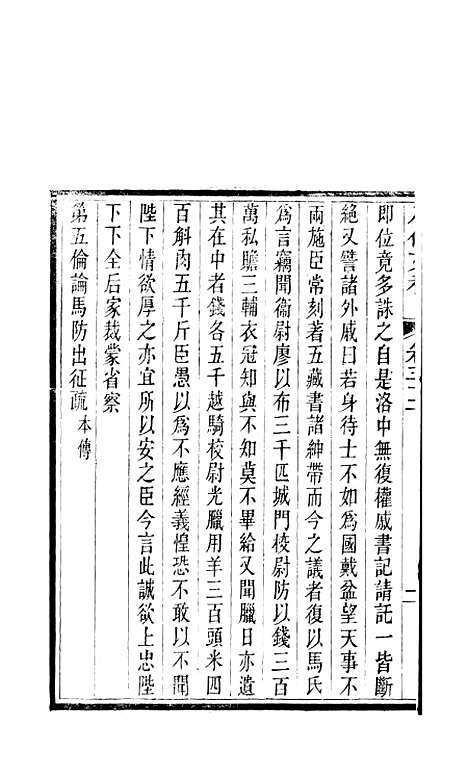 即位竟多誅之自是洛中無復權戚書記請託一皆斷
絶又譬諸外戚曰若身待士不如爲國戴盆望天事不
兩施臣常刻著五藏書諸紳帶而今之議者復以馬氏
爲言竊聞衞尉廖以布三千匹城門校尉防以錢三百
萬私贍三輔衣冠知與不知莫不畢給又聞臘日亦遺
其在中者錢各五千越騎校尉光臘用羊三百頭米四
百斛肉五千斤臣愚以爲不應經義惶恐不敢以不聞
陛下情欲厚之亦宜所以安之臣今言此誠欲上忠陛
下下全后家裁蒙省察
第五倫論馬防出征疏本傳